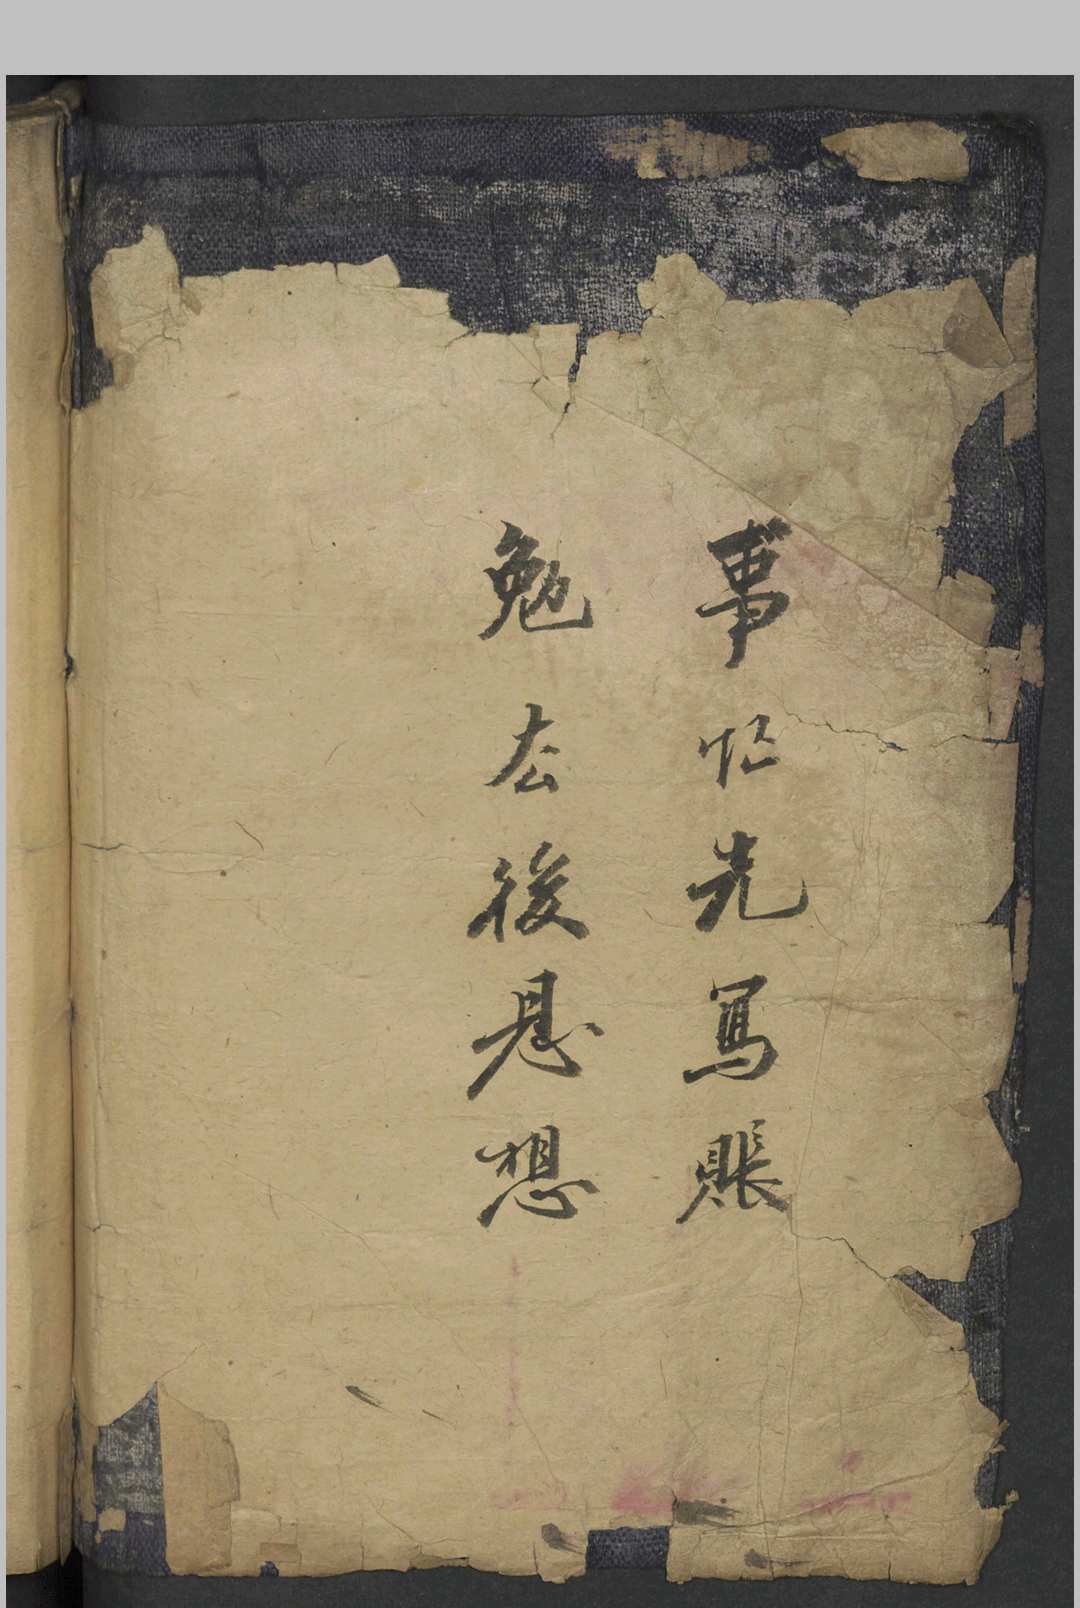 事忙先寫賬
勉去後思想